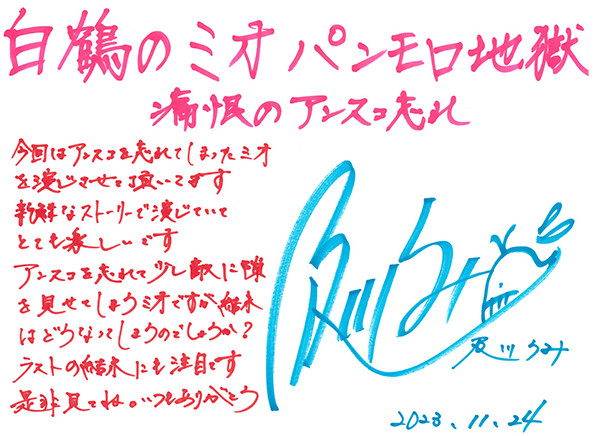 白鶴のミオ パンモロ地獄
痛恨のアンスコ忘れ
今回はアンスコを忘れてしまったミオ
を演じさせて頂いてます
新鮮なストーリーで演じていて
とても楽しいです
アンスコを忘れて少し敵に隙
を見せてしまうミオですが結末
はどうなってしまうのでしょうか?
ラストの結末にも注目です
是非見てね。いつもありがとう
及川うみ
及川うみ
2023.11.24